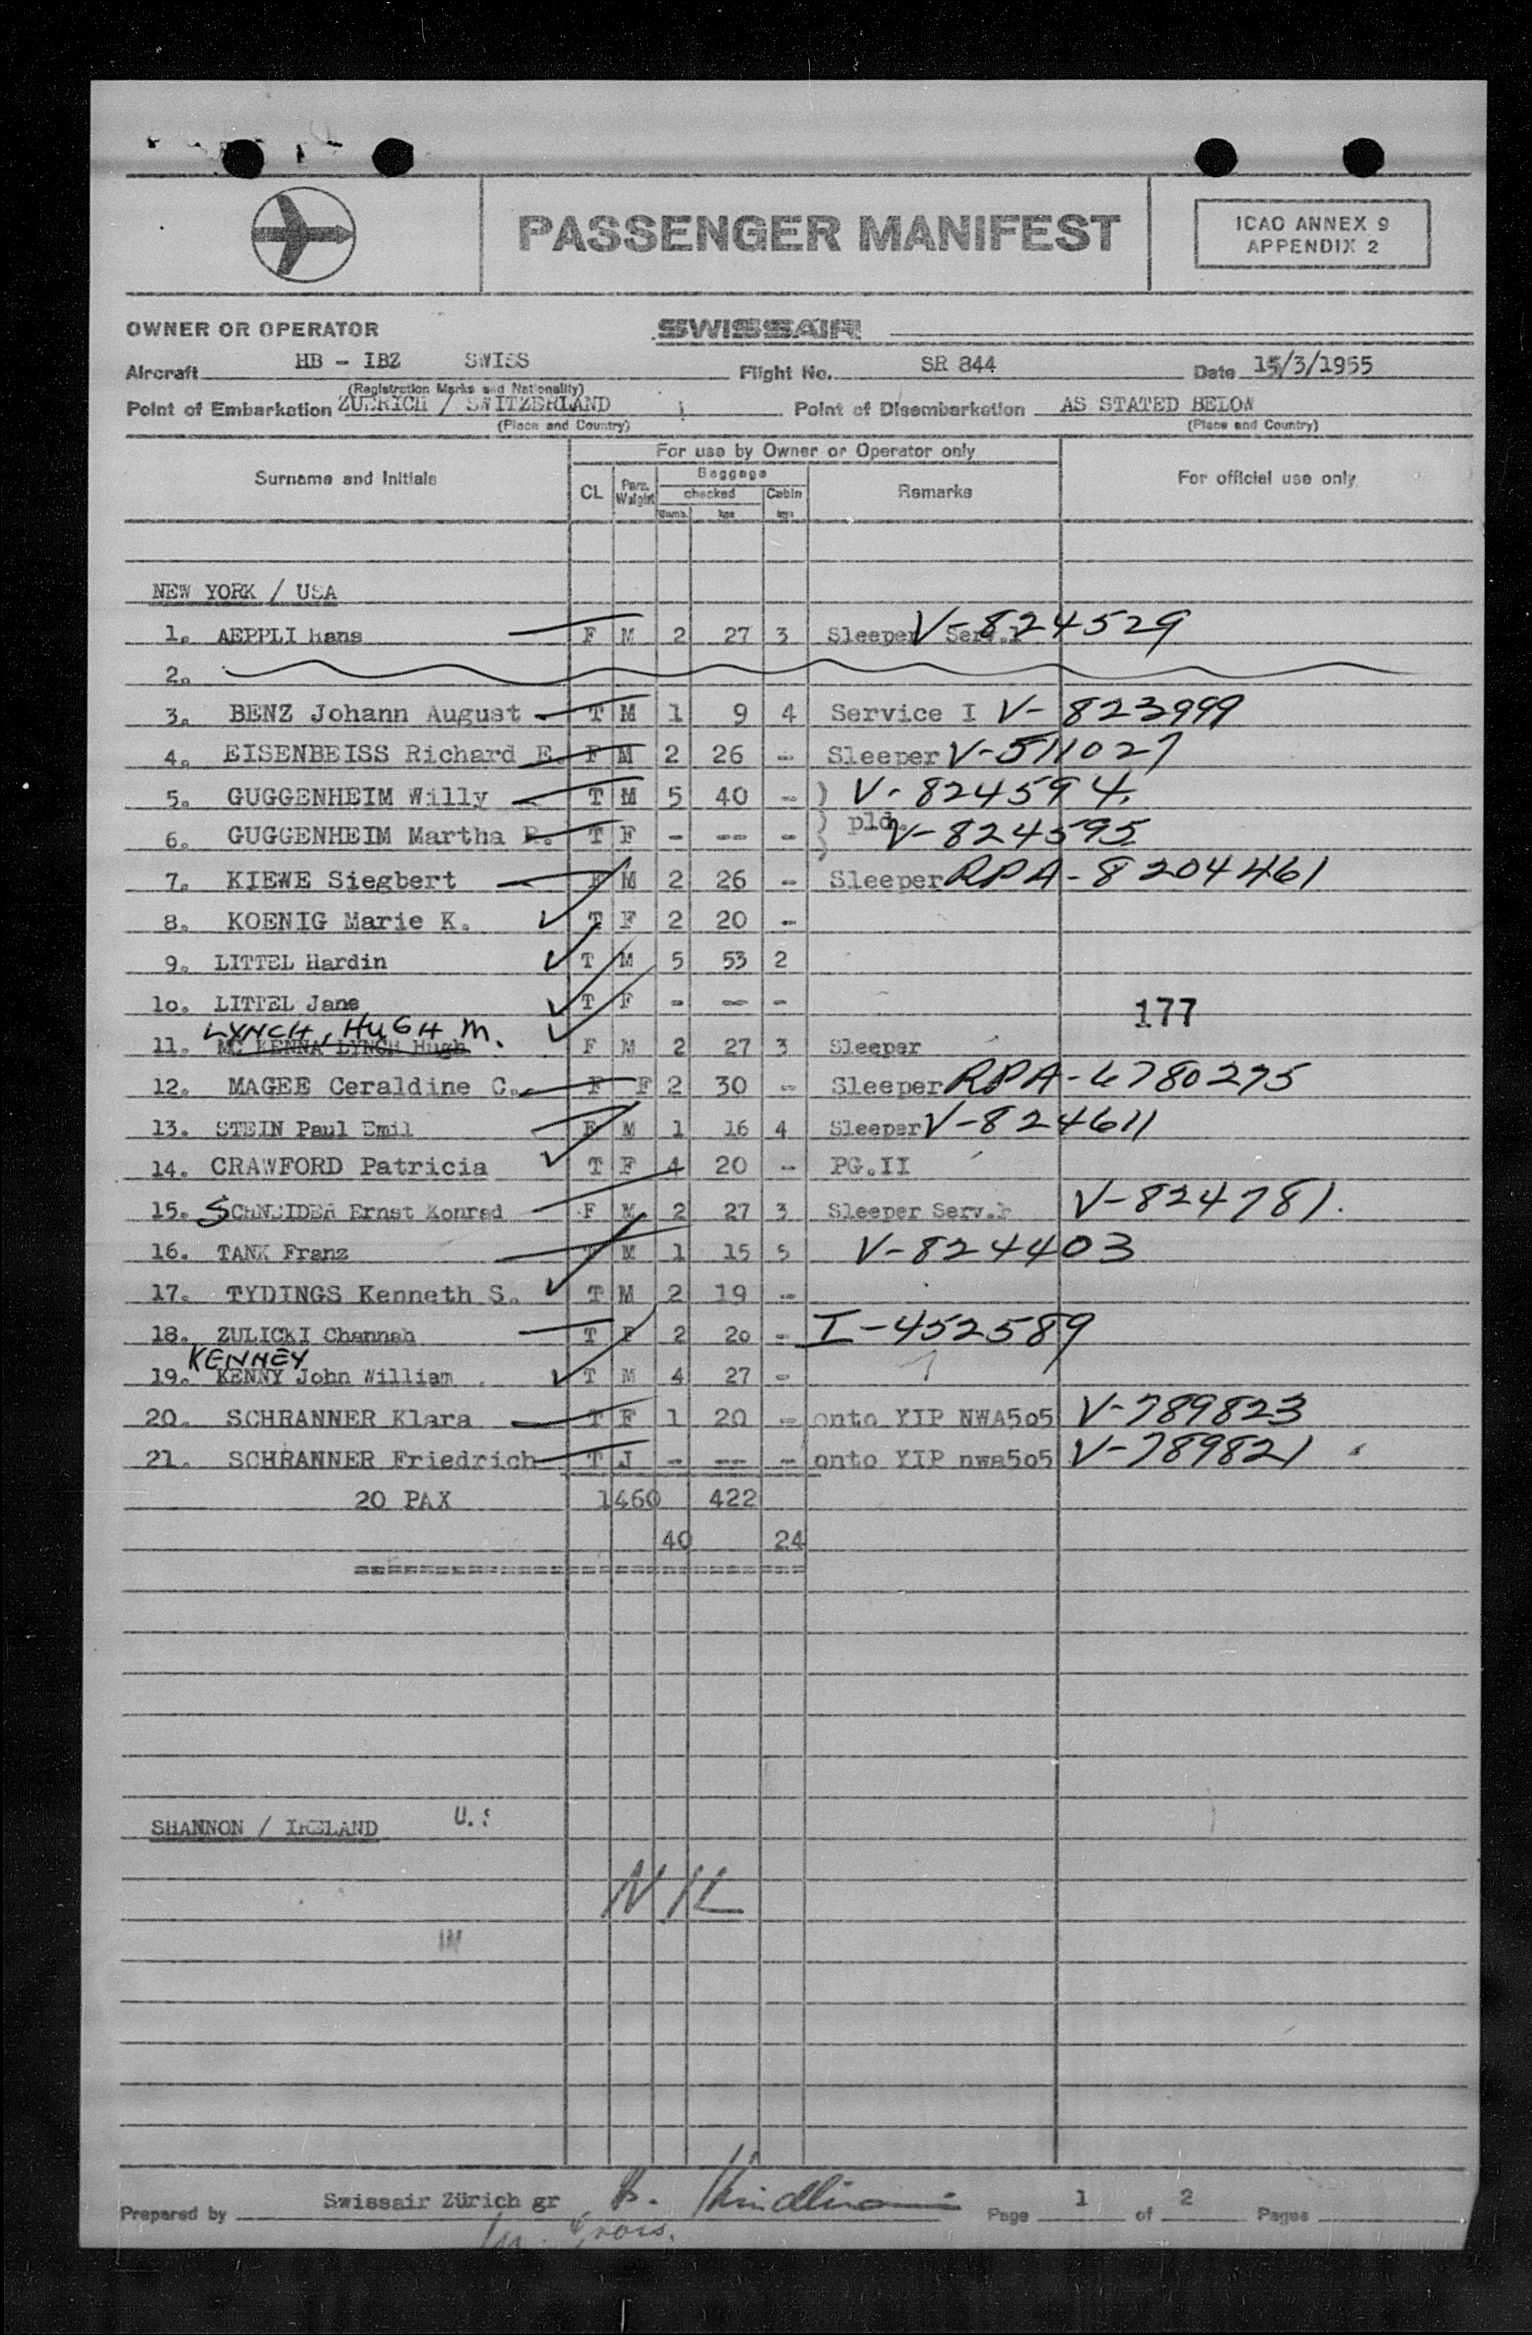 PASSENGER MANIFEST
ICAO ANNEX 9
APPENDIX 2
OWNER OR OPERATOR SWISSAIR
Aircraft HB - IBZ SWISS Flight No. SR 844 Date 15/3/1955
(Registration Marks and Nationality)
Point of Embarkation ZUERICH / SWITZERLAND Point of Disembarkation AS STATED BELOW
(Place and Country) (Place and Country)
For use by Owner or Operator only
Surname and Initials CL Pers. Weight Baggage checked Cabin Remarks For official use only
Numb. kgs kgs
NEW YORK / USA
1. AEPPLI Hans F M 2 27 3 Sleeper Serv. V-824529
2.
3. BENZ Johann August T M 1 9 4 Service I V-823999
4. EISENBEISS Richard E. F M 2 26 - Sleeper V-511027
5. GUGGENHEIM Willy T M 5 40 - ) V-824594.
6. GUGGENHEIM Martha R. T F - -- - ) pld. V-824595
7. KIEWE Siegbert F M 2 26 - Sleeper RPA-8204461
8. KOENIG Marie K. T F 2 20 -
9. LITTEL Hardin T M 5 53 2
10. LITTEL Jane T F - -- -
177
LYNCH, HUGH M.
11. MC KENNA LYNCH Hugh F M 2 27 3 Sleeper
12. MAGEE Ceraldine C. F F 2 30 - Sleeper RPA-6780275
13. STEIN Paul Emil F M 1 16 4 Sleeper V-824611
14. CRAWFORD Patricia T F 4 20 - PG.II
15. SCHNEIDER Ernst Konrad F M 2 27 3 Sleeper Serv. V-824781.
16. TANK Franz T M 1 15 5 V-824403
17. TYDINGS Kenneth S. T M 2 19 -
18. ZULICKI Channah T F 2 20 - I-452589
KENNEY
19. KENNY John William T M 4 27 -
20. SCHRANNER Klara T F 1 20 - onto YIP NWA505 V-789823
21. SCHRANNER Friedrich T J - -- - onto YIP nwa505 V-789821
20 PAX 1460 422
40 24
=============================
SHANNON / IRELAND U.S
NIL
IN
Prepared by Swissair Zürich gr Page 1 of 2 Pages